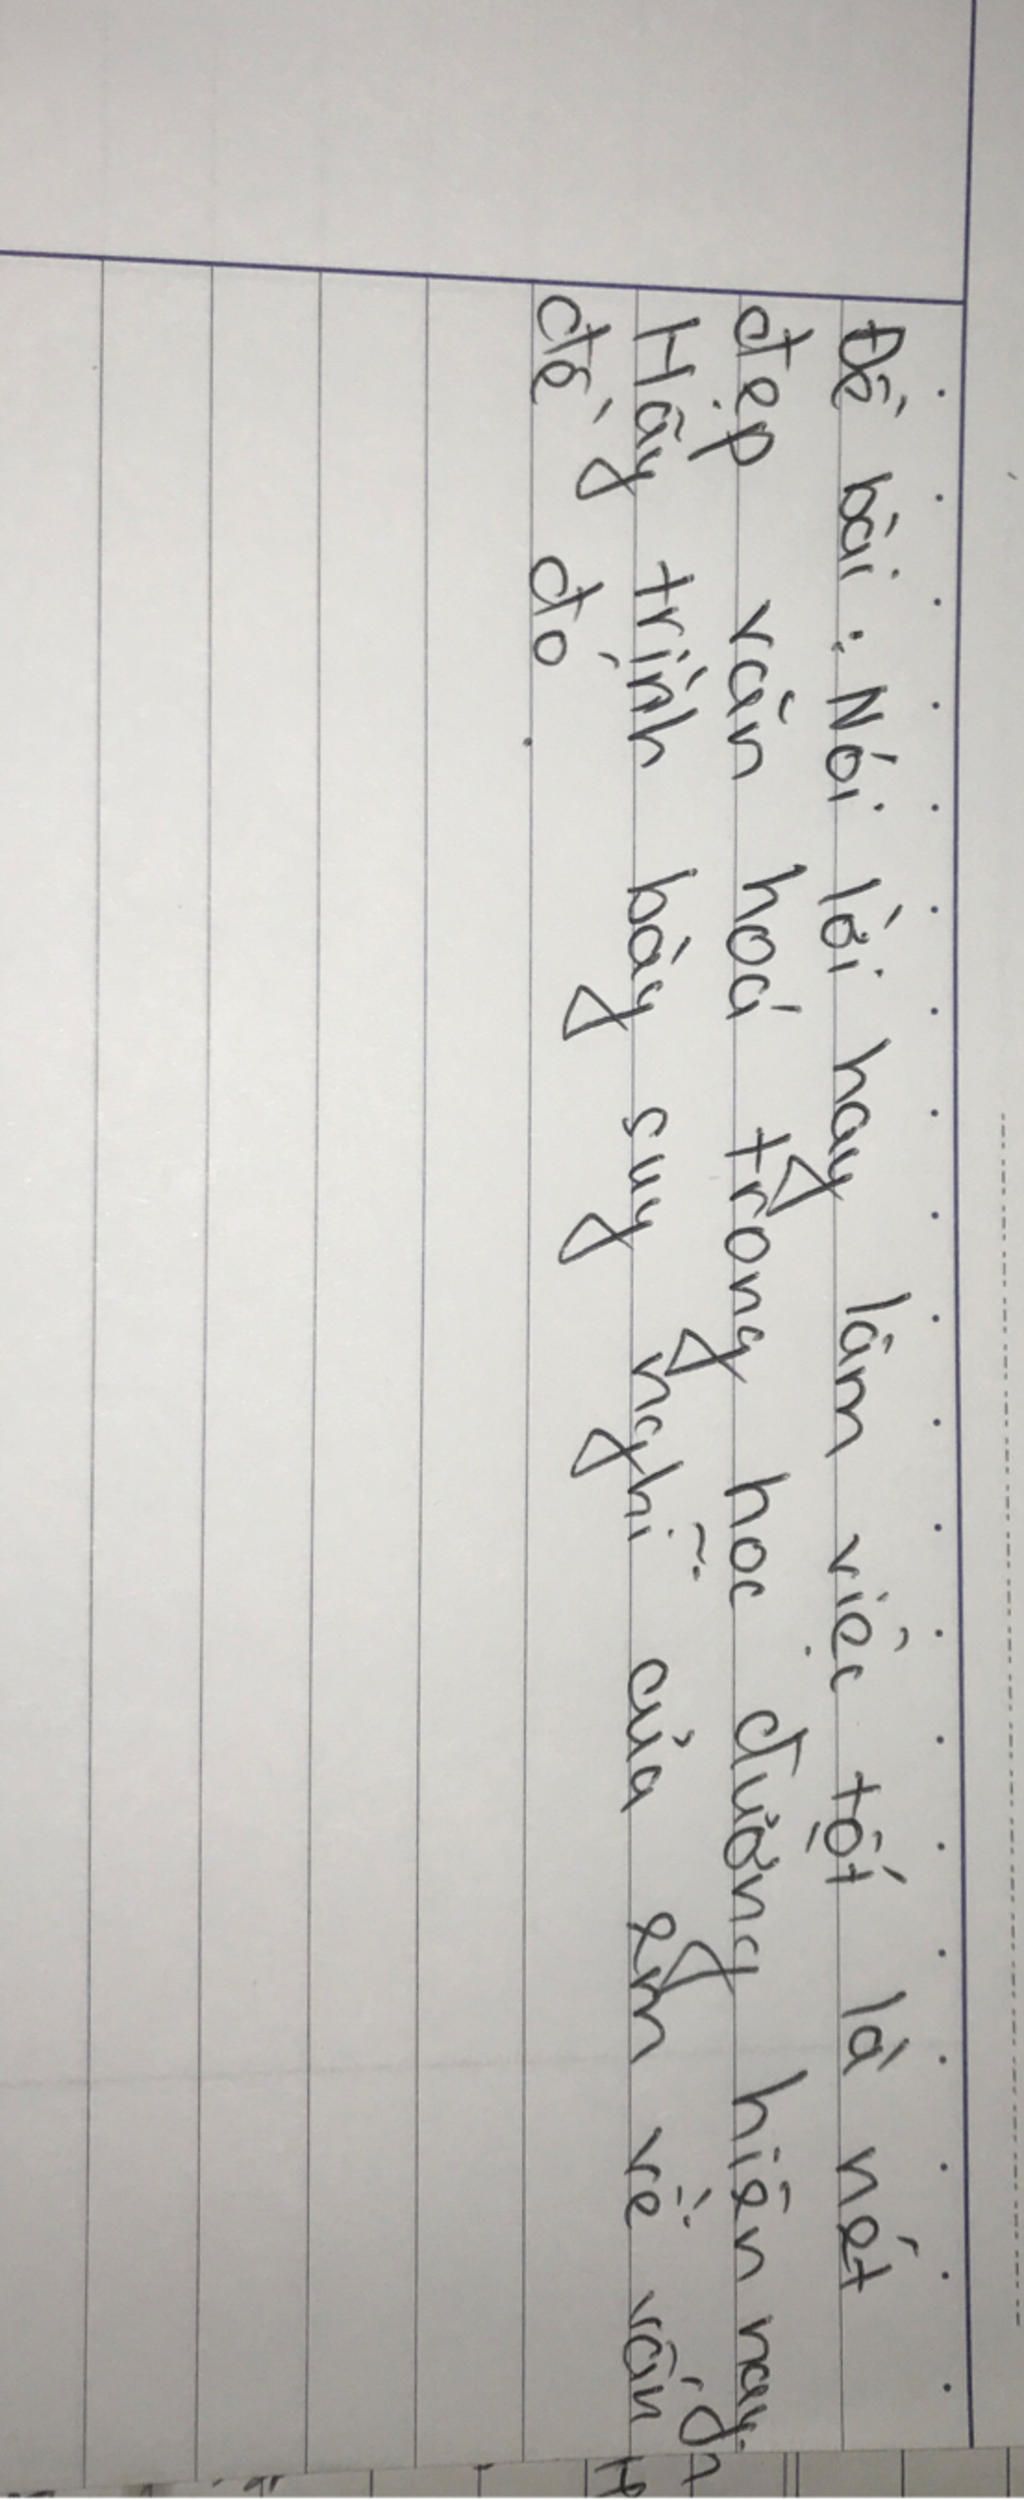 Đề bài : Nói lời hay làm việc tốt là nét
đẹp văn hoá trong học đường hiện nay.
Hãy trình bày suy nghĩ của em về vấn
đề đó.